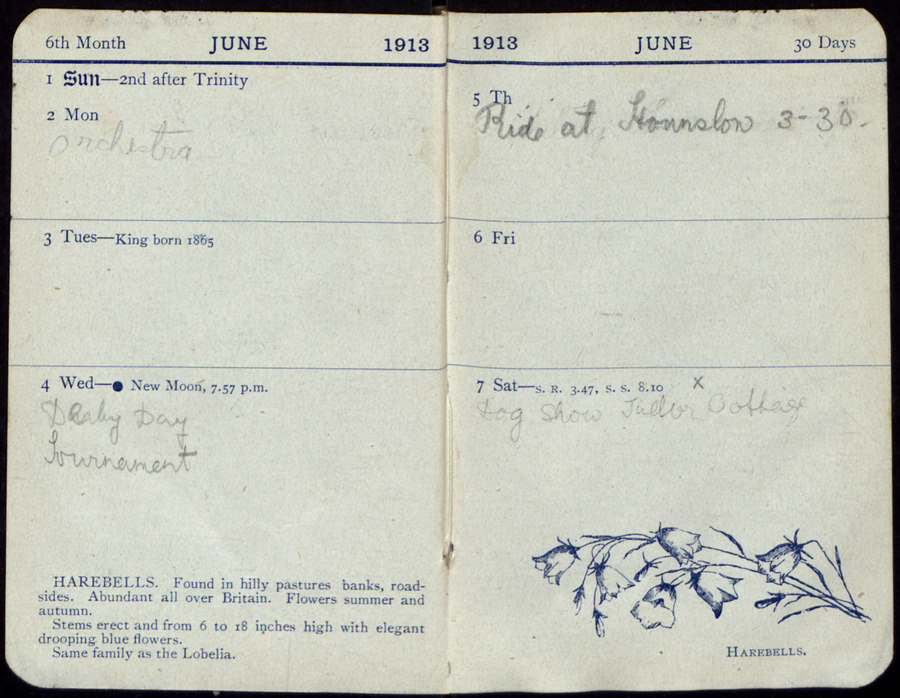 6th Month JUNE 1913
1 Sun—2nd after Trinity
2 Mon
Orchestra
3 Tues—King born 1865
4 Wed—● New Moon, 7.57 p.m.
Derby Day
Tournament
HAREBELLS. Found in hilly pastures banks, road-
sides. Abundant all over Britain. Flowers summer and
autumn.
Stems erect and from 6 to 18 inches high with elegant
drooping blue flowers.
Same family as the Lobelia.
1913 JUNE 30 Days
5 Th
Ride at Hounslow 3-30.
6 Fri
7 Sat—S. R. 3.47, S. S. 8.10 X
Dog Show Tudor Cottage
HAREBELLS.